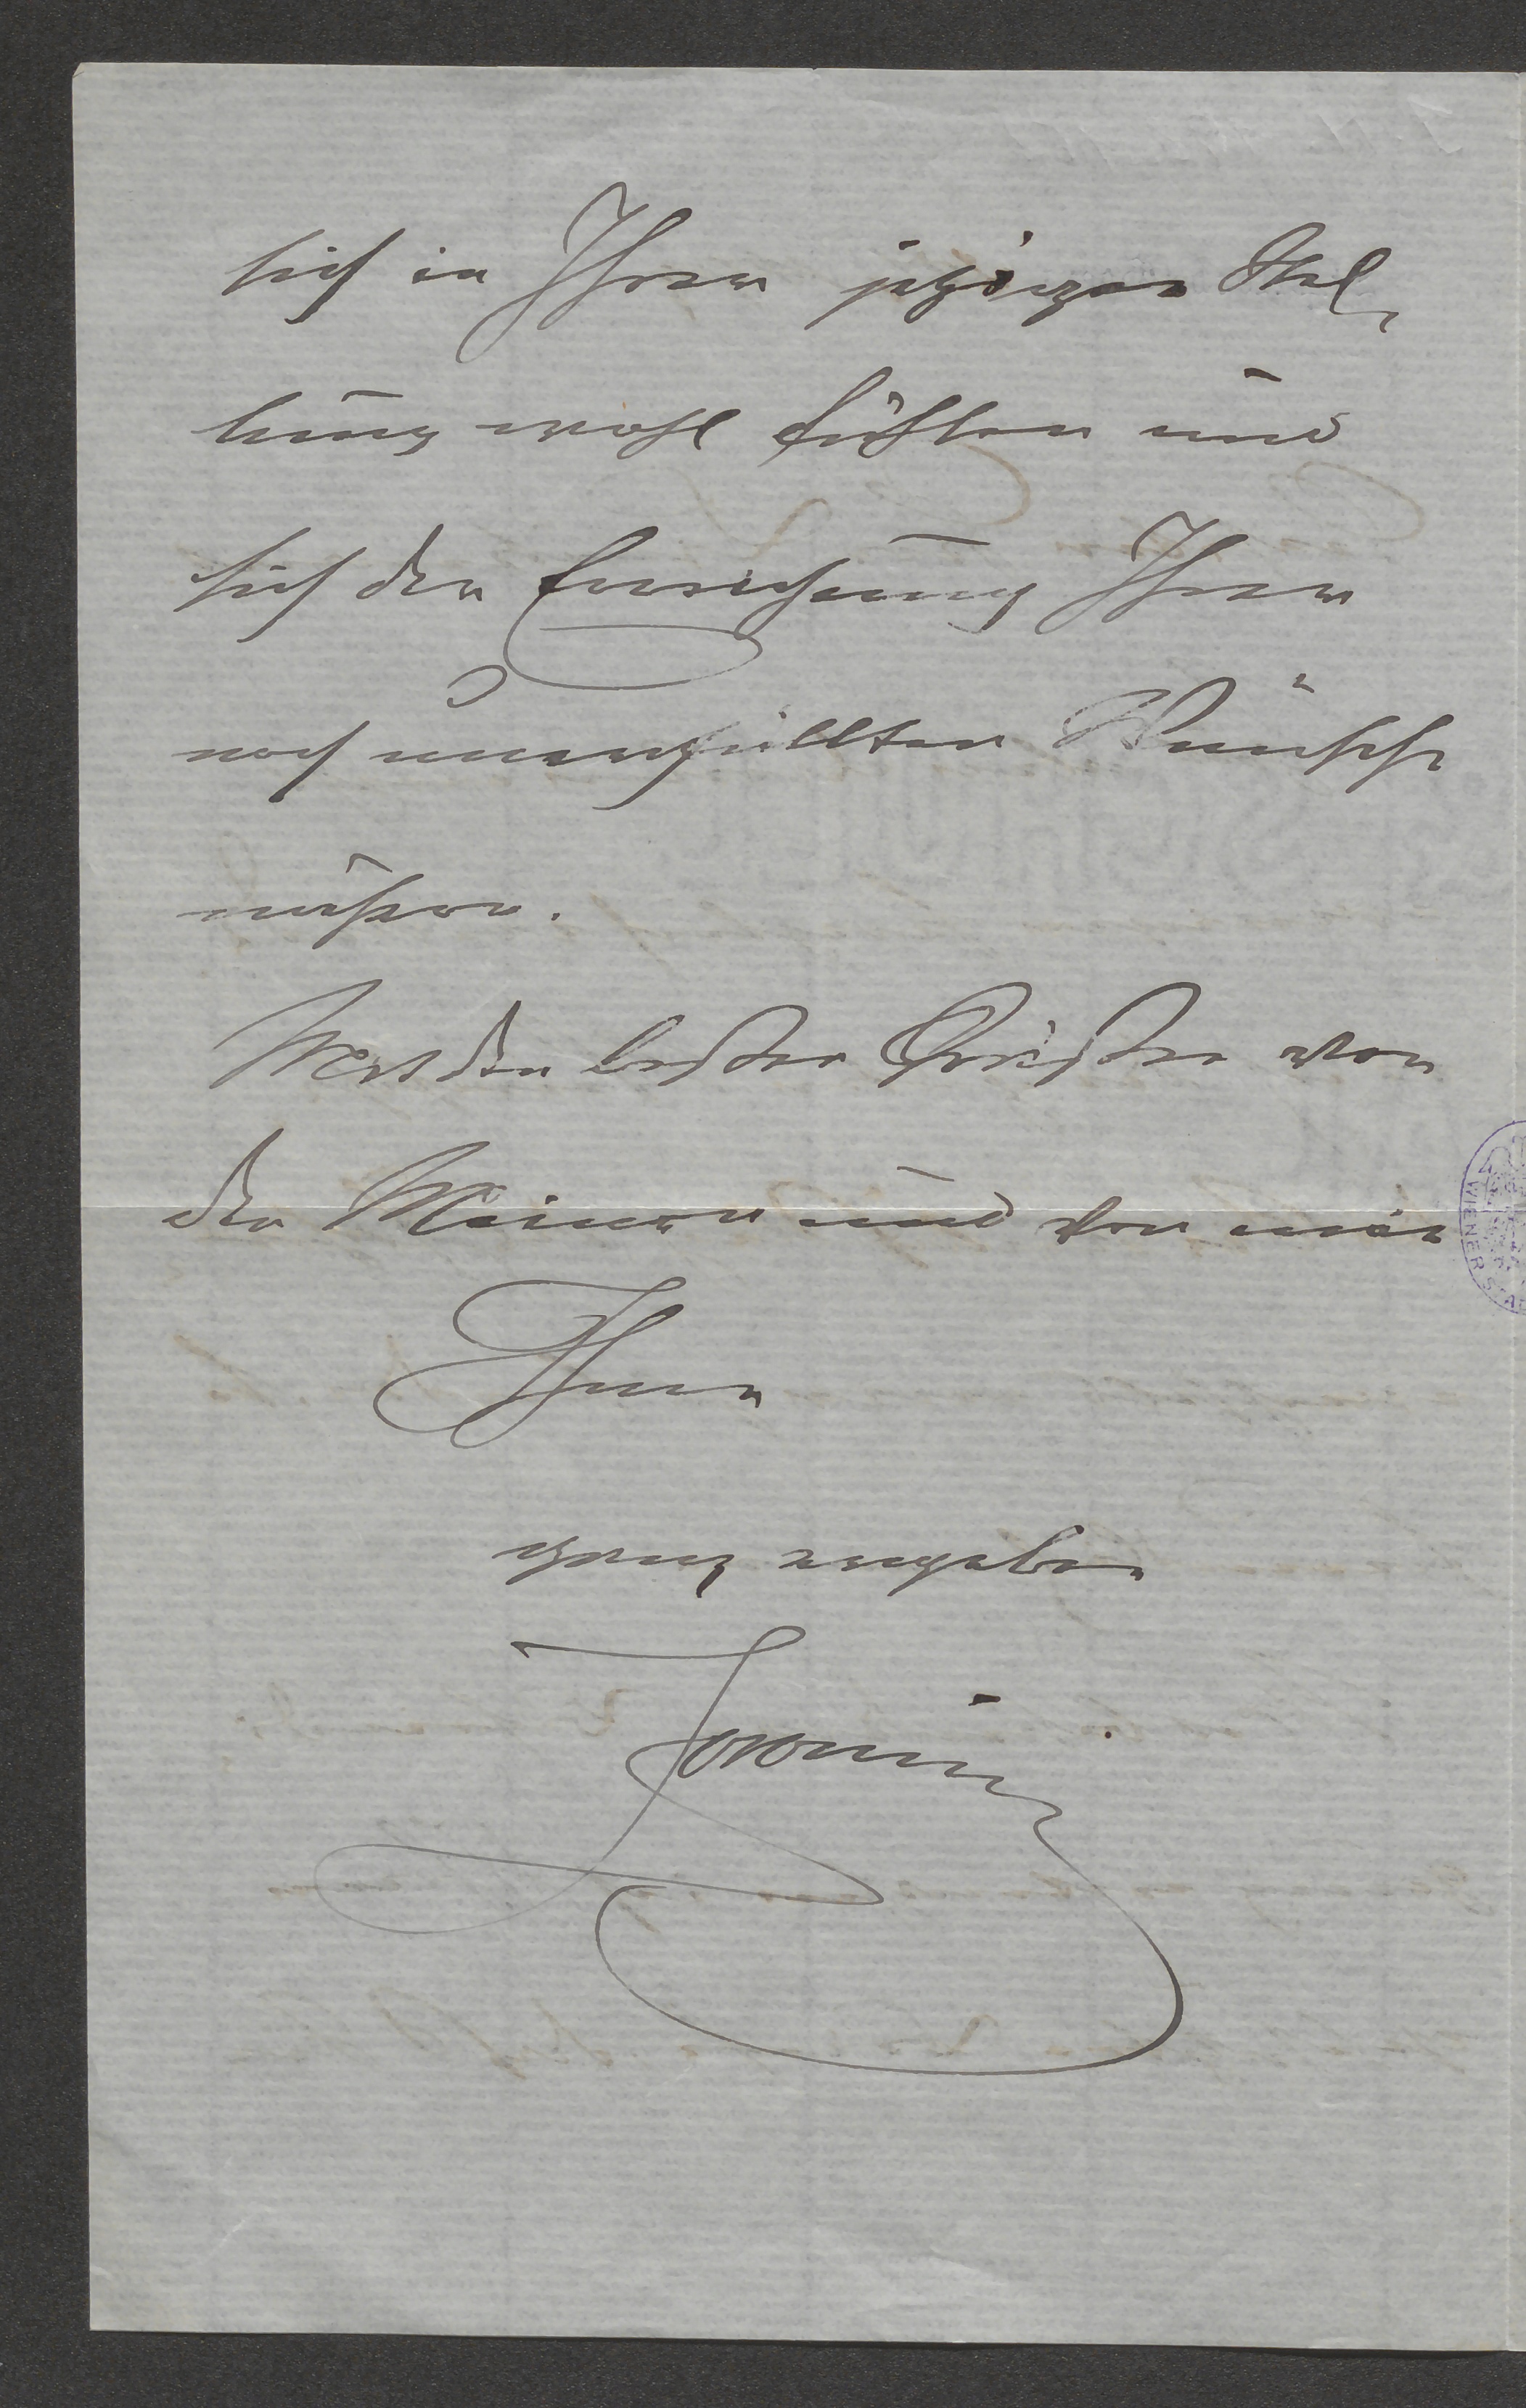 sich in Ihrer jetzigen Stel-
lung wohl fühlen und
sich der Erreichung Ihrer
noch unerfüllten Wünsche
nähern.
Mit den besten Grüßen von
den Meinen und von mir
Ihr
ganz ergebener
WIENER